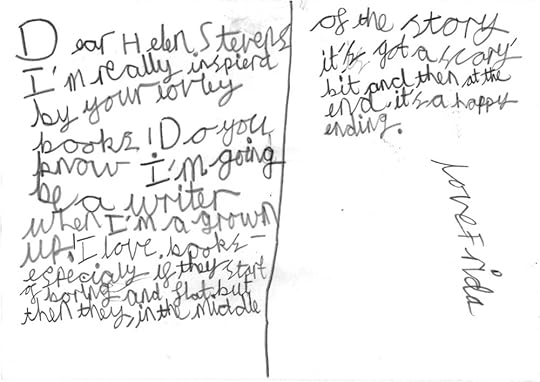 Dear Helen Stevens
I'm really inspierd
by your lovley
books! Do you
know I'm going
be a writer
when I'm a grown
up! I love books
especialy if they start
of boring and flat but
then they, in the middle
of the story
it's got a scary
bit and then at the
end it's a happy
ending.
love Frida